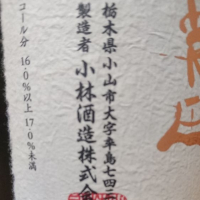 栃木県小山市大字卒島七四三
製造者 小林酒造株式会
コール分 16.0%以上 17.0%未満